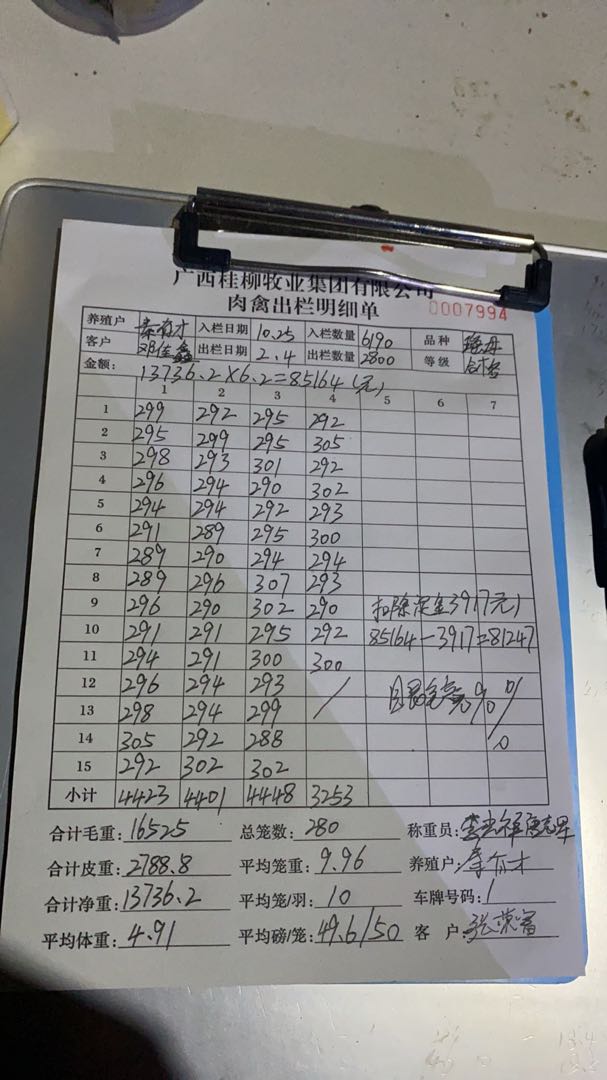 广西桂柳牧业集团有限公司
肉禽出栏明细单
0007994
养殖户 秦有才 入栏日期 10.25 入栏数量 6190 品种
客户 邓佳鑫 出栏日期 2.4 出栏数量 2800 等级
金额: 13736.2×6.2=85164(元)
1 2 3 4 5 6 7
1 299 292 295 292
2 295 299 295 305
3 298 293 301 292
4 296 294 290 302
5 294 294 292 293
6 291 289 295 300
7 289 290 294 294
8 289 296 307 293
9 296 290 302 290 扣除定金3917元)
10 291 291 295 292 85164-3917=81247
11 294 291 300 300
12 296 294 293 /
13 298 294 299
14 305 292 288
15 292 302 302
小计 4423 4401 4448 3253
合计毛重: 16525 总笼数: 280 称重员:
合计皮重: 2788.8 平均笼重: 9.96 养殖户: 秦有才
合计净重: 13736.2 平均笼/羽: 10 车牌号码: 1
平均体重: 4.91 平均磅/笼: 49.6/50 客 户: 张荣富